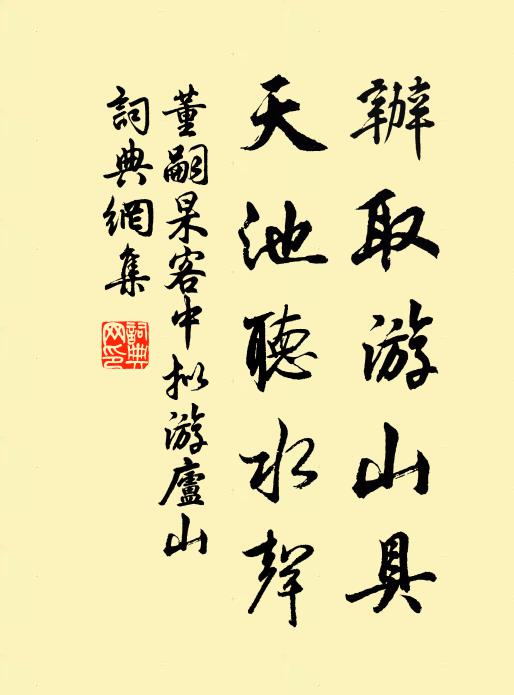 辦取游山具
天池聽水聲
董嗣杲客中拟游廬山
詞典網集
詞典网印